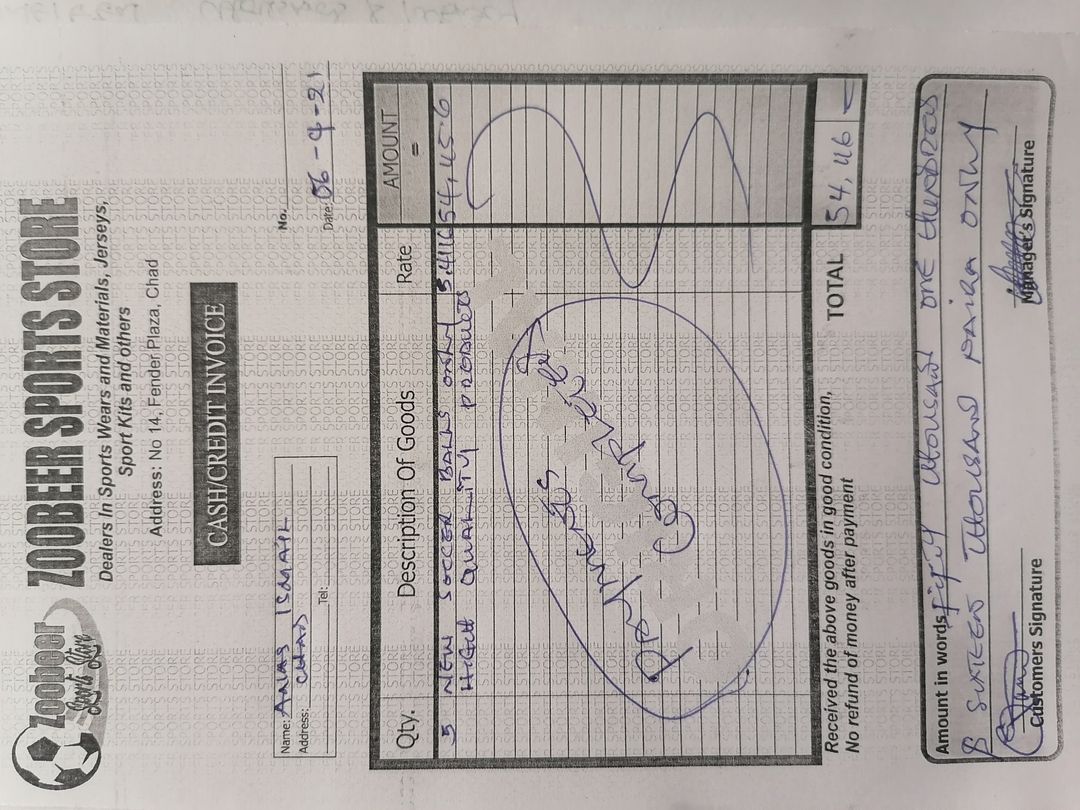 Zoobeer
Sports Store
ZOOBEER SPORTS STORE
Dealers In Sports Wears and Materials, Jerseys,
Sport Kits and others
Address: No 14, Fender Plaza, Chad
CASH/CREDIT INVOICE
No.
Name: ISMAIL
Address: CHAD
Tel:
Date: 06-4-21
Qty. Description Of Goods Rate AMOUNT
=
5 NEW SOCCER BALLS ONLY
HIGH QUALITY PRODUCTS
Payment
Completed
Received the above goods in good condition,
No refund of money after payment
TOTAL 54,116
Amount in words THOUSAND ONE HUNDRED
& SIXTEEN THOUSAND ONLY
Customers Signature
Manager's Signature